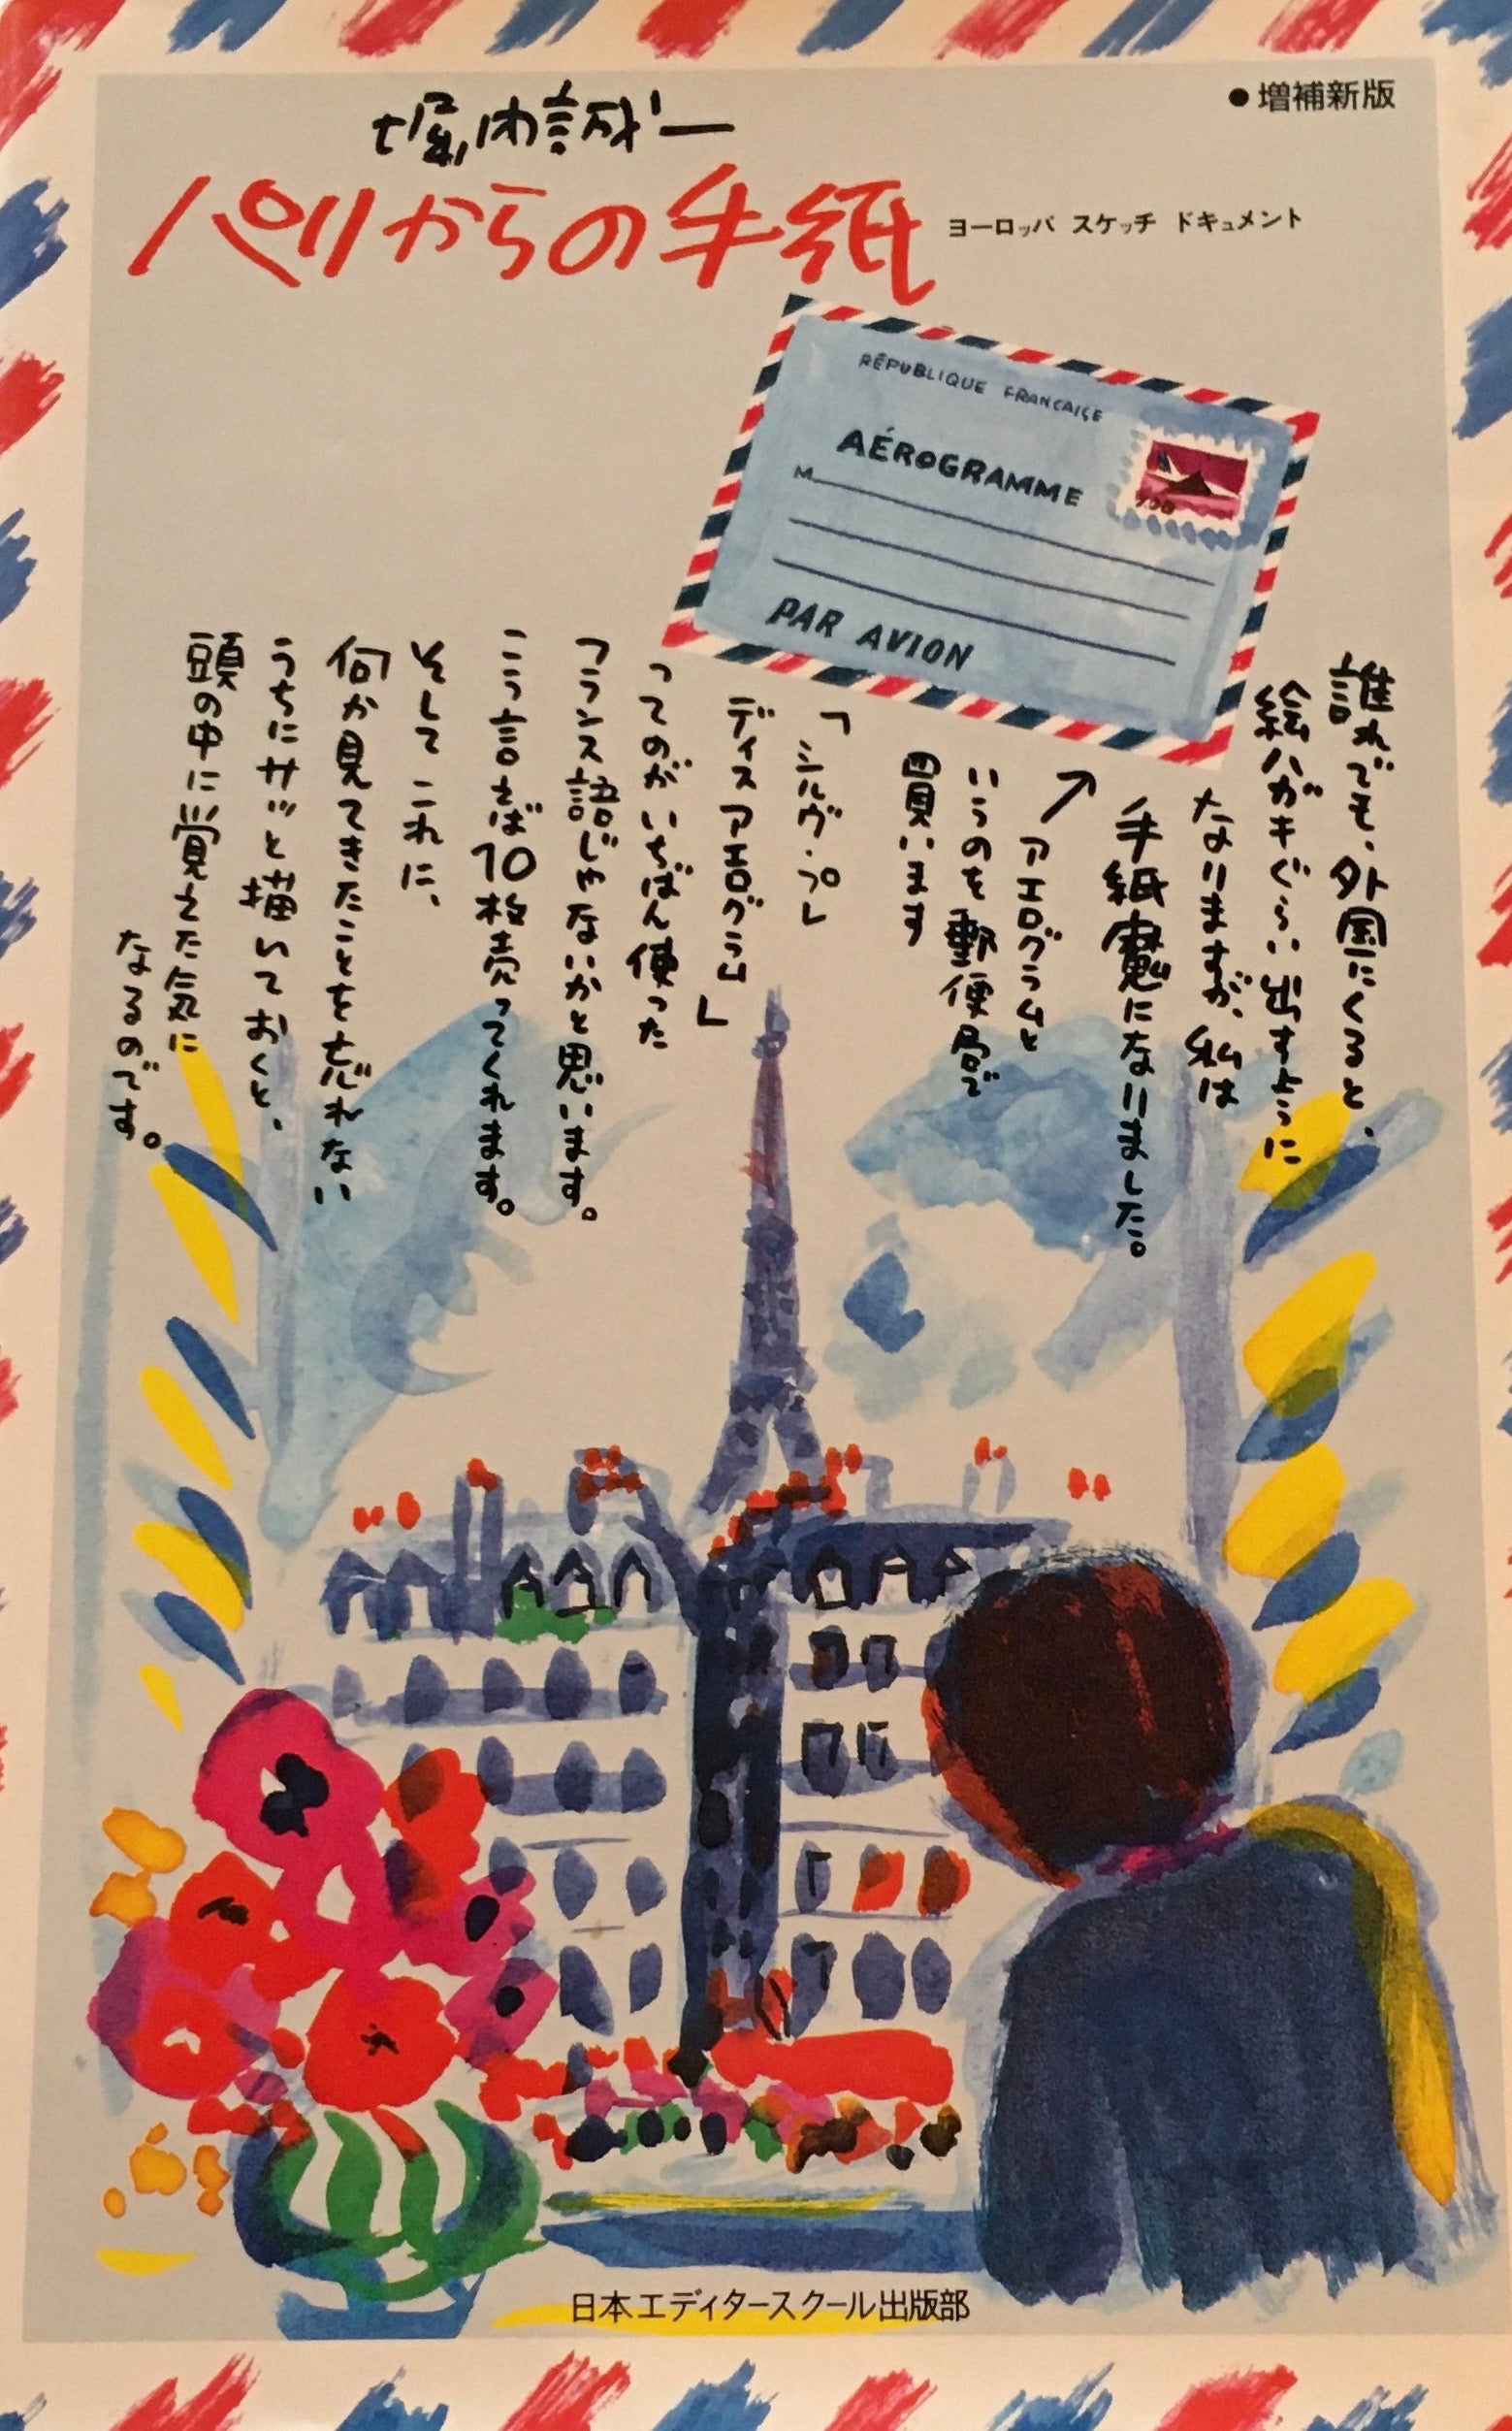 ●増補新版
堀内誠一
パリからの手紙
ヨーロッパ スケッチ ドキュメント
RÉPUBLIQUE FRANCAISE
AÉROGRAMME
M
PAR AVION
誰れでも、外国にくると、
絵ハガキぐらい出すように
なりますが、私は
手紙魔になりました。
↗アエログラムと
いうのを郵便局で
買います
「シルヴ・プレ
ディスアエログラム」
ってのがいちばん使った
フランス語じゃないかと思います。
こう言えば10枚売ってくれます。
そしてこれに、
何か見てきたことを忘れない
うちにサッと描いておくと、
頭の中に覚えた気に
なるのです。
日本エディタースクール出版部